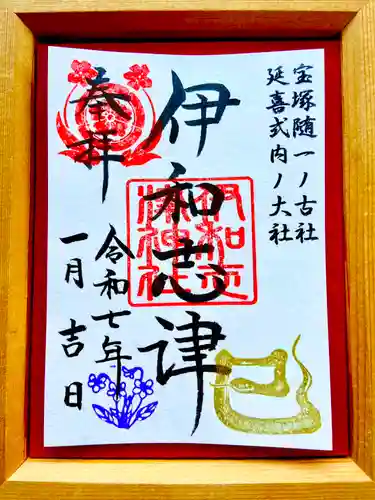 宝塚随一ノ古社
延喜式内ノ大社
伊和志津
伊和志津神社
奉拝
令和七年
一月吉日
巳